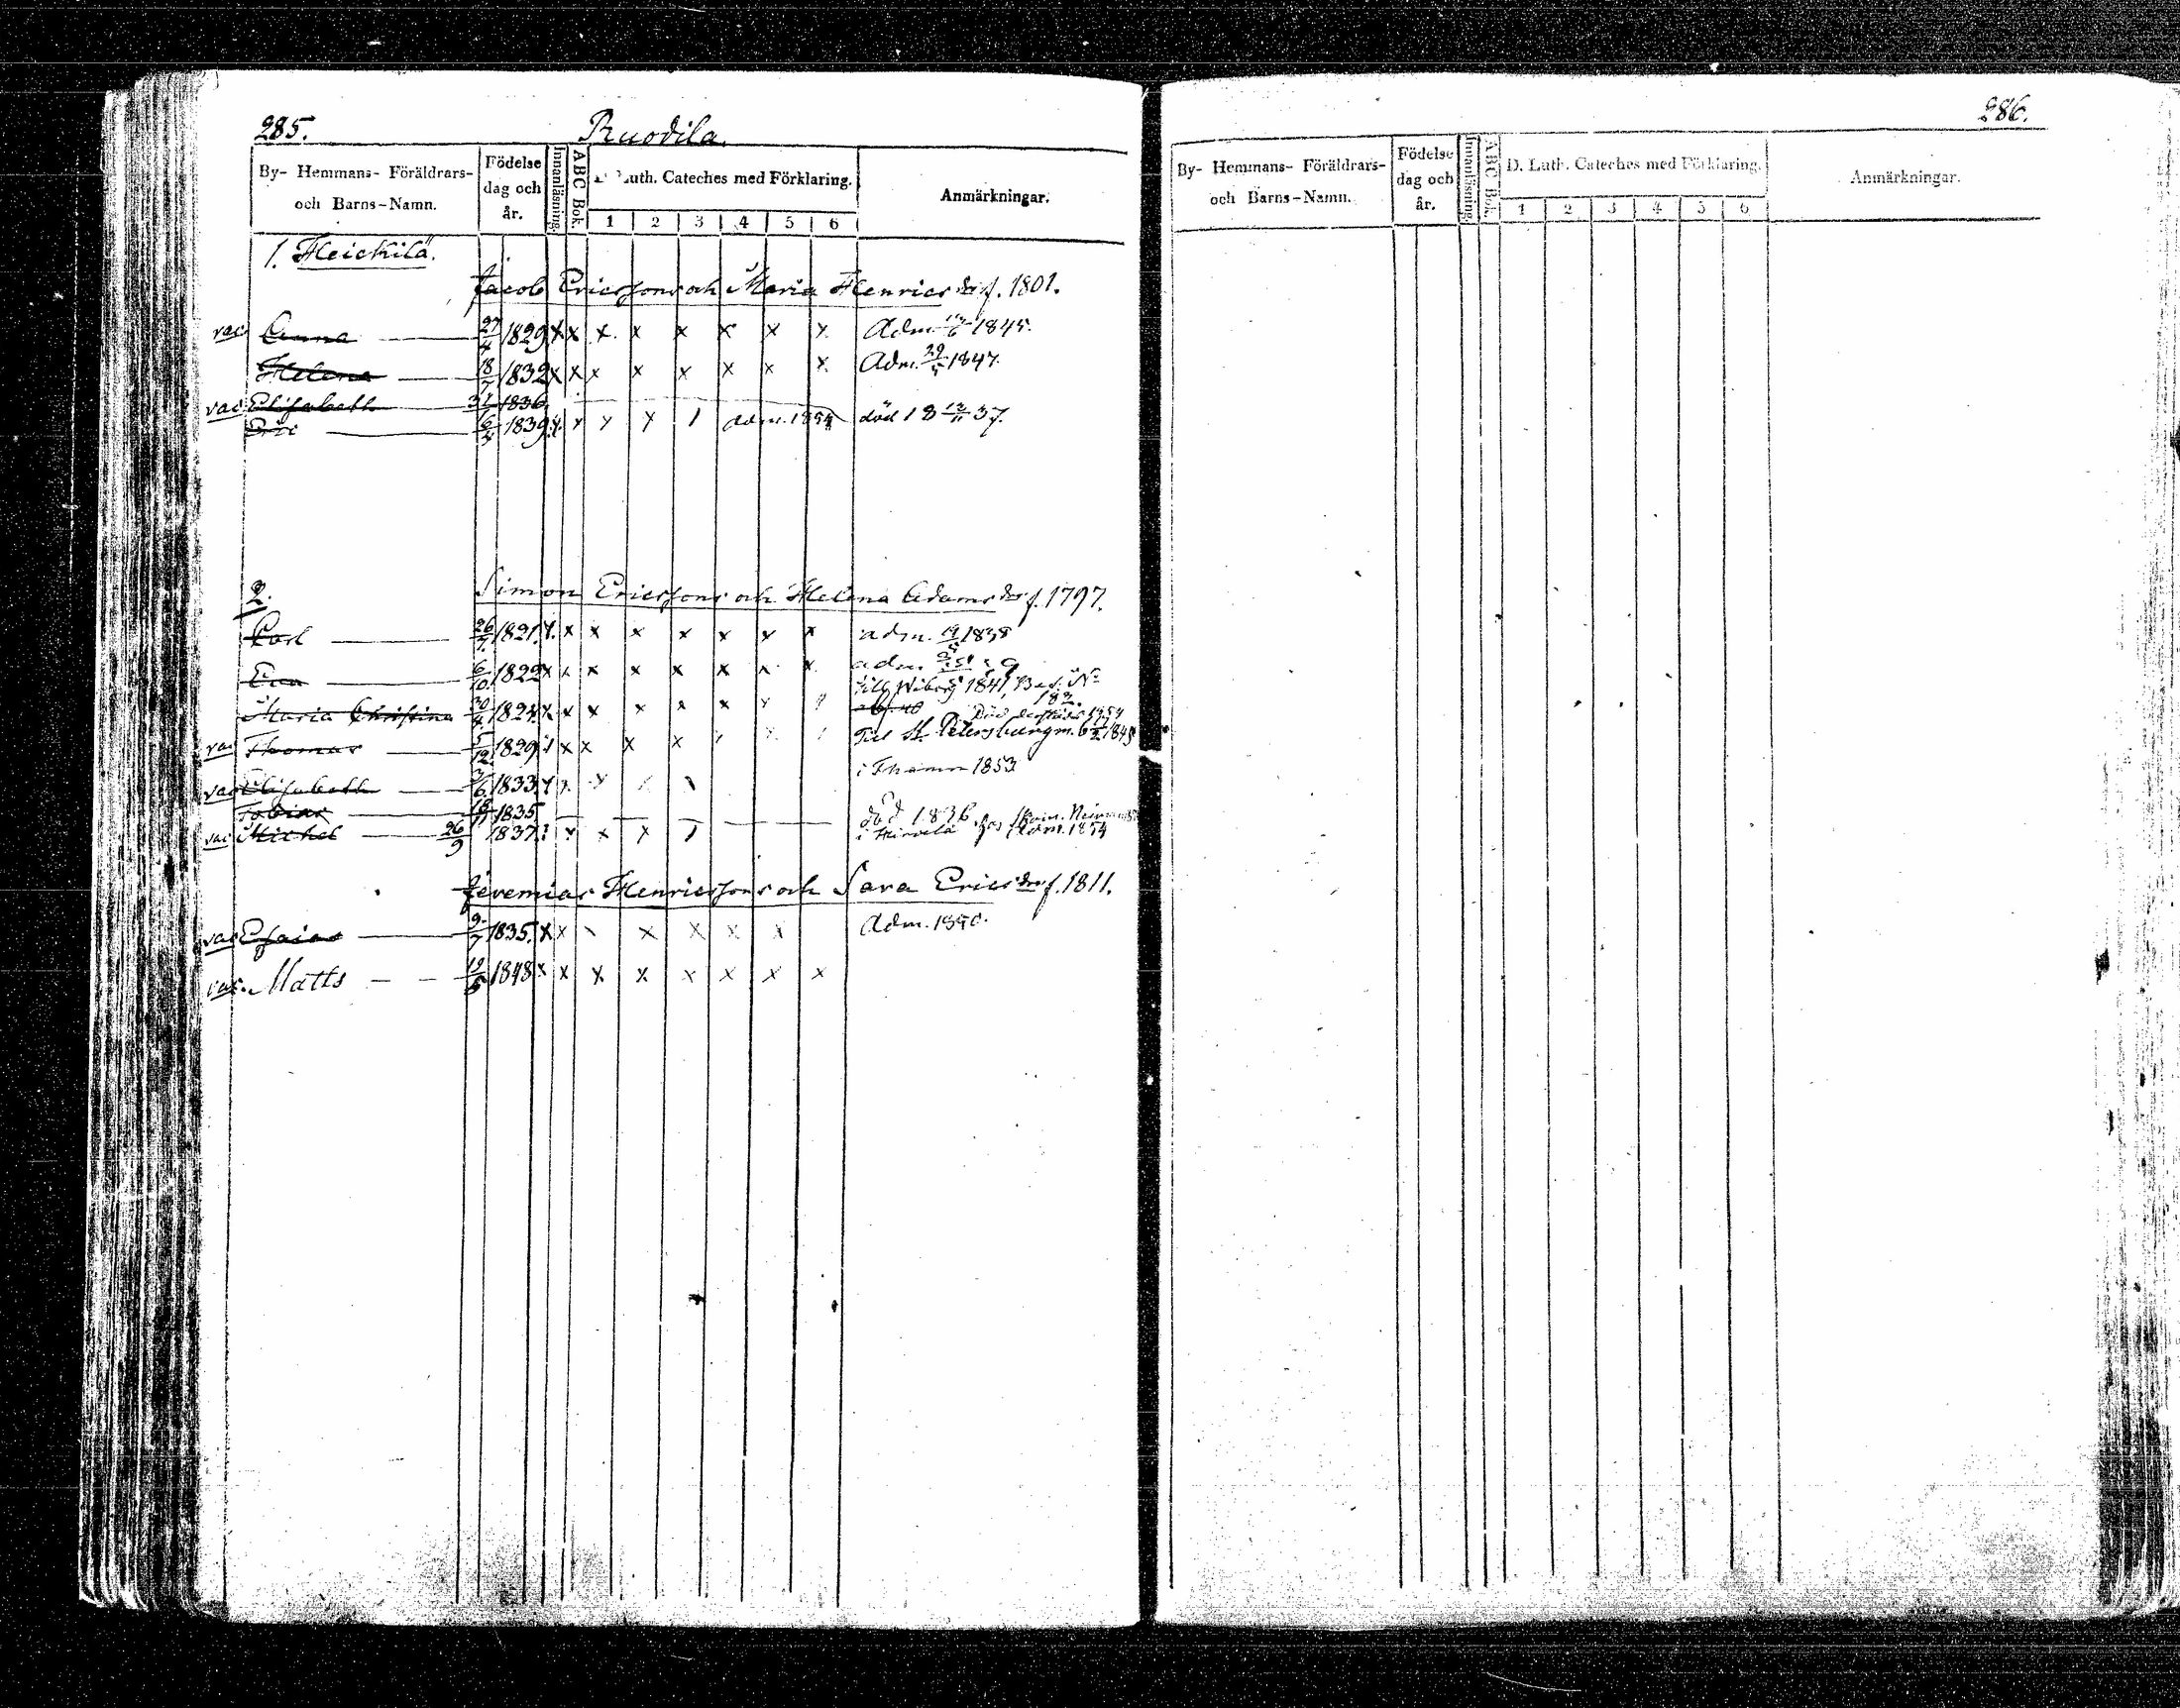 285.
Ruodila.
By- Hemmans- Föräldrars- och Barns-Namn.
Födelse dag och år.
Innanläsning.
ABC Bok.
Luth. Cateches med Förklaring.
1 2 3 4 5 6
Anmärkningar.
1. Heickilä.
Jacob Ericssons och Maria Henrics dr f. 1801.
vac Anna 27/4 1829 x x x x x x x x Adm. 1845.
Helena 18/7 1832 x x x x x x x x Adm. 1847.
vac Elisabeth 31 1836
Eric 6 1839 x x y y 1 adm. 1854 död 18 12/11 37.
2. Simon Ericssons och Helena Adams dr f. 1797.
Carl 26/7 1821 x x x x x x x x adm. 1838
Eva 6/10 1822 x x x x x x x x adm.
till Wiborg 1841, Bev. No
182.
Maria Christina 30/4 1824 x x x x x x
Död derstädes 1854
vac Thomas 5/12 1829 x x x x
Till St Petersburg m. 1845
vac Elisabeth 3/6 1833
i Thamn 1853
Tobias 18/11 1835 död 1836.
vac Michel 26/9 1837 x x x 1 i Hirvelä hos Adm. 1854
Jeremias Henricssons och Sara Erics dr f. 1811.
vac Esaias 9/7 1835 x x x x x x Adm. 1850.
vac. Matts 19/5 1848 x x x x x x x x
286.
By- Hemmans- Föräldrars- och Barns-Namn.
Födelse dag och år.
Innanläsning.
ABC Bok.
D. Luth. Cateches med Förklaring.
1 2 3 4 5 6
Anmärkningar.